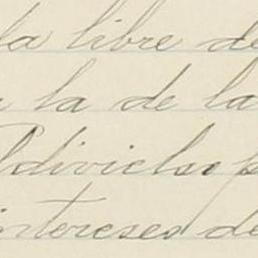 la libre de
la de la
Valdivielso p
intereses de